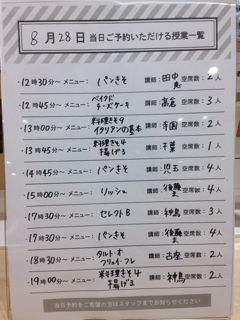 8月28日 当日ご予約いただける授業一覧
・12時30分〜 メニュー: パンきそ 講師: 田中恵 空席数: 2人
・12時45分〜 メニュー: ベイクドチーズケーキ 講師: 高倉 空席数: 3人
・13時00分〜 メニュー: 料理きそ9 イタリアンの基本 講師: 寺園 空席数: 2人
・13時45分〜 メニュー: 料理きそ4 揚げる 講師: 千葉 空席数: 1人
・14時45分〜 メニュー: パンきそ 講師: 児玉 空席数: 4人
・15時00分〜 メニュー: リッシュ 講師: 後藤 空席数: 4人
・17時30分〜 メニュー: セレクトB 講師: 神鳥 空席数: 3人
・17時30分〜 メニュー: パンきそ 講師: 後藤 空席数: 4人
・18時30分〜 メニュー: タルト・オ・フリュイ・フレ 講師: 古座 空席数: 2人
・19時00分〜 メニュー: 料理きそ4 揚げる 講師: 神鳥 空席数: 2人
当日予約をご希望の方はスタッフまでお知らせください